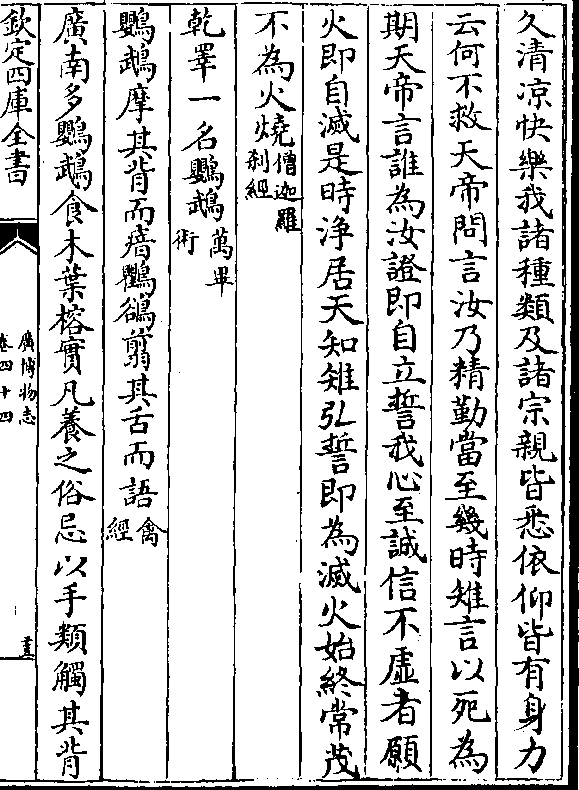 久清凉快樂我諸種類及諸宗親皆悉依仰皆有身力
云何不救天帝問言汝乃精勤當至幾時雉言以死為
期天帝言誰為汝證即自立誓我心至誠信不虛者願
火即自滅是時淨居天知雉弘誓即為滅火始終常茂
不為火燒僧迦羅剎經
乾睪一名鸚鵡萬畢術
鸚鵡摩其背而瘖鸜鵒翦其舌而語禽經
廣南多鸚鵡食木葉榕實凡養之俗忌以手類觸其背
欽定四庫全書
廣博物志
卷四十四